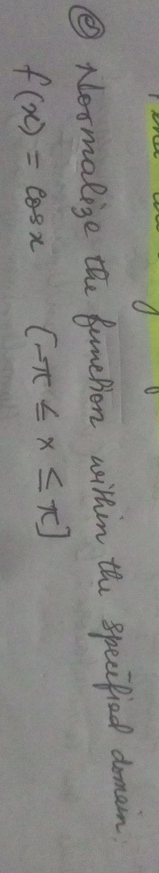 (c) Normalize the function within the specified domain:
f(x) = cos x (-π ≤ x ≤ π]